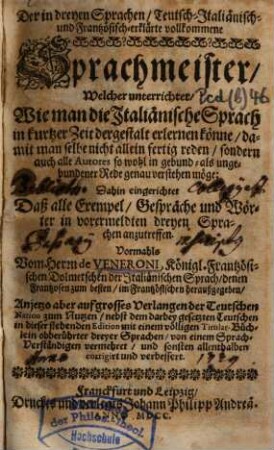 Der in dreyen Sprachen / Teutsch-Italiänisch-
und Frantzösisch-erklärte vollkommene
Sprachmeister /
Welcher unterrichtet /
Pcd (6) 46
Wie man die Italiänische Sprach
in kurtzer Zeit dergestalt erlernen könne / da-
mit man selbe nicht allein fertig reden / sondern
auch alle Autores so wohl in gebund / als unge-
bundener Rede genau verstehen möge;
Dahin eingerichtet
Daß alle Exempel / Gespräche und Wör-
ter in vorermeldten dreyen Spra-
chen anzutreffen.
Vormahls
Vom Herrn de VENERONI, Königl. Frantzösi-
schen Dolmetschen der Italiänischen Sprach / denen
Frantzosen zum besten / im Frantzösischen herausgegeben /
Anjetzo aber auf grosses Verlangen der Teutschen
Nation zum Nutzen / nebst dem darbey gesetzten Teutschen
in dieser siebenden Edition mit einem völligen Titular-Büch-
lein obberührter dreyer Sprachen / von einem Sprach-
Verständigen vermehret / und sonsten allenthalben
corrigirt und verbessert.
Franckfurt und Leipzig /
Druckts und verlegts Johann Philipp Andreä-
MDCC.
Philosoph. theol.
Hochschule